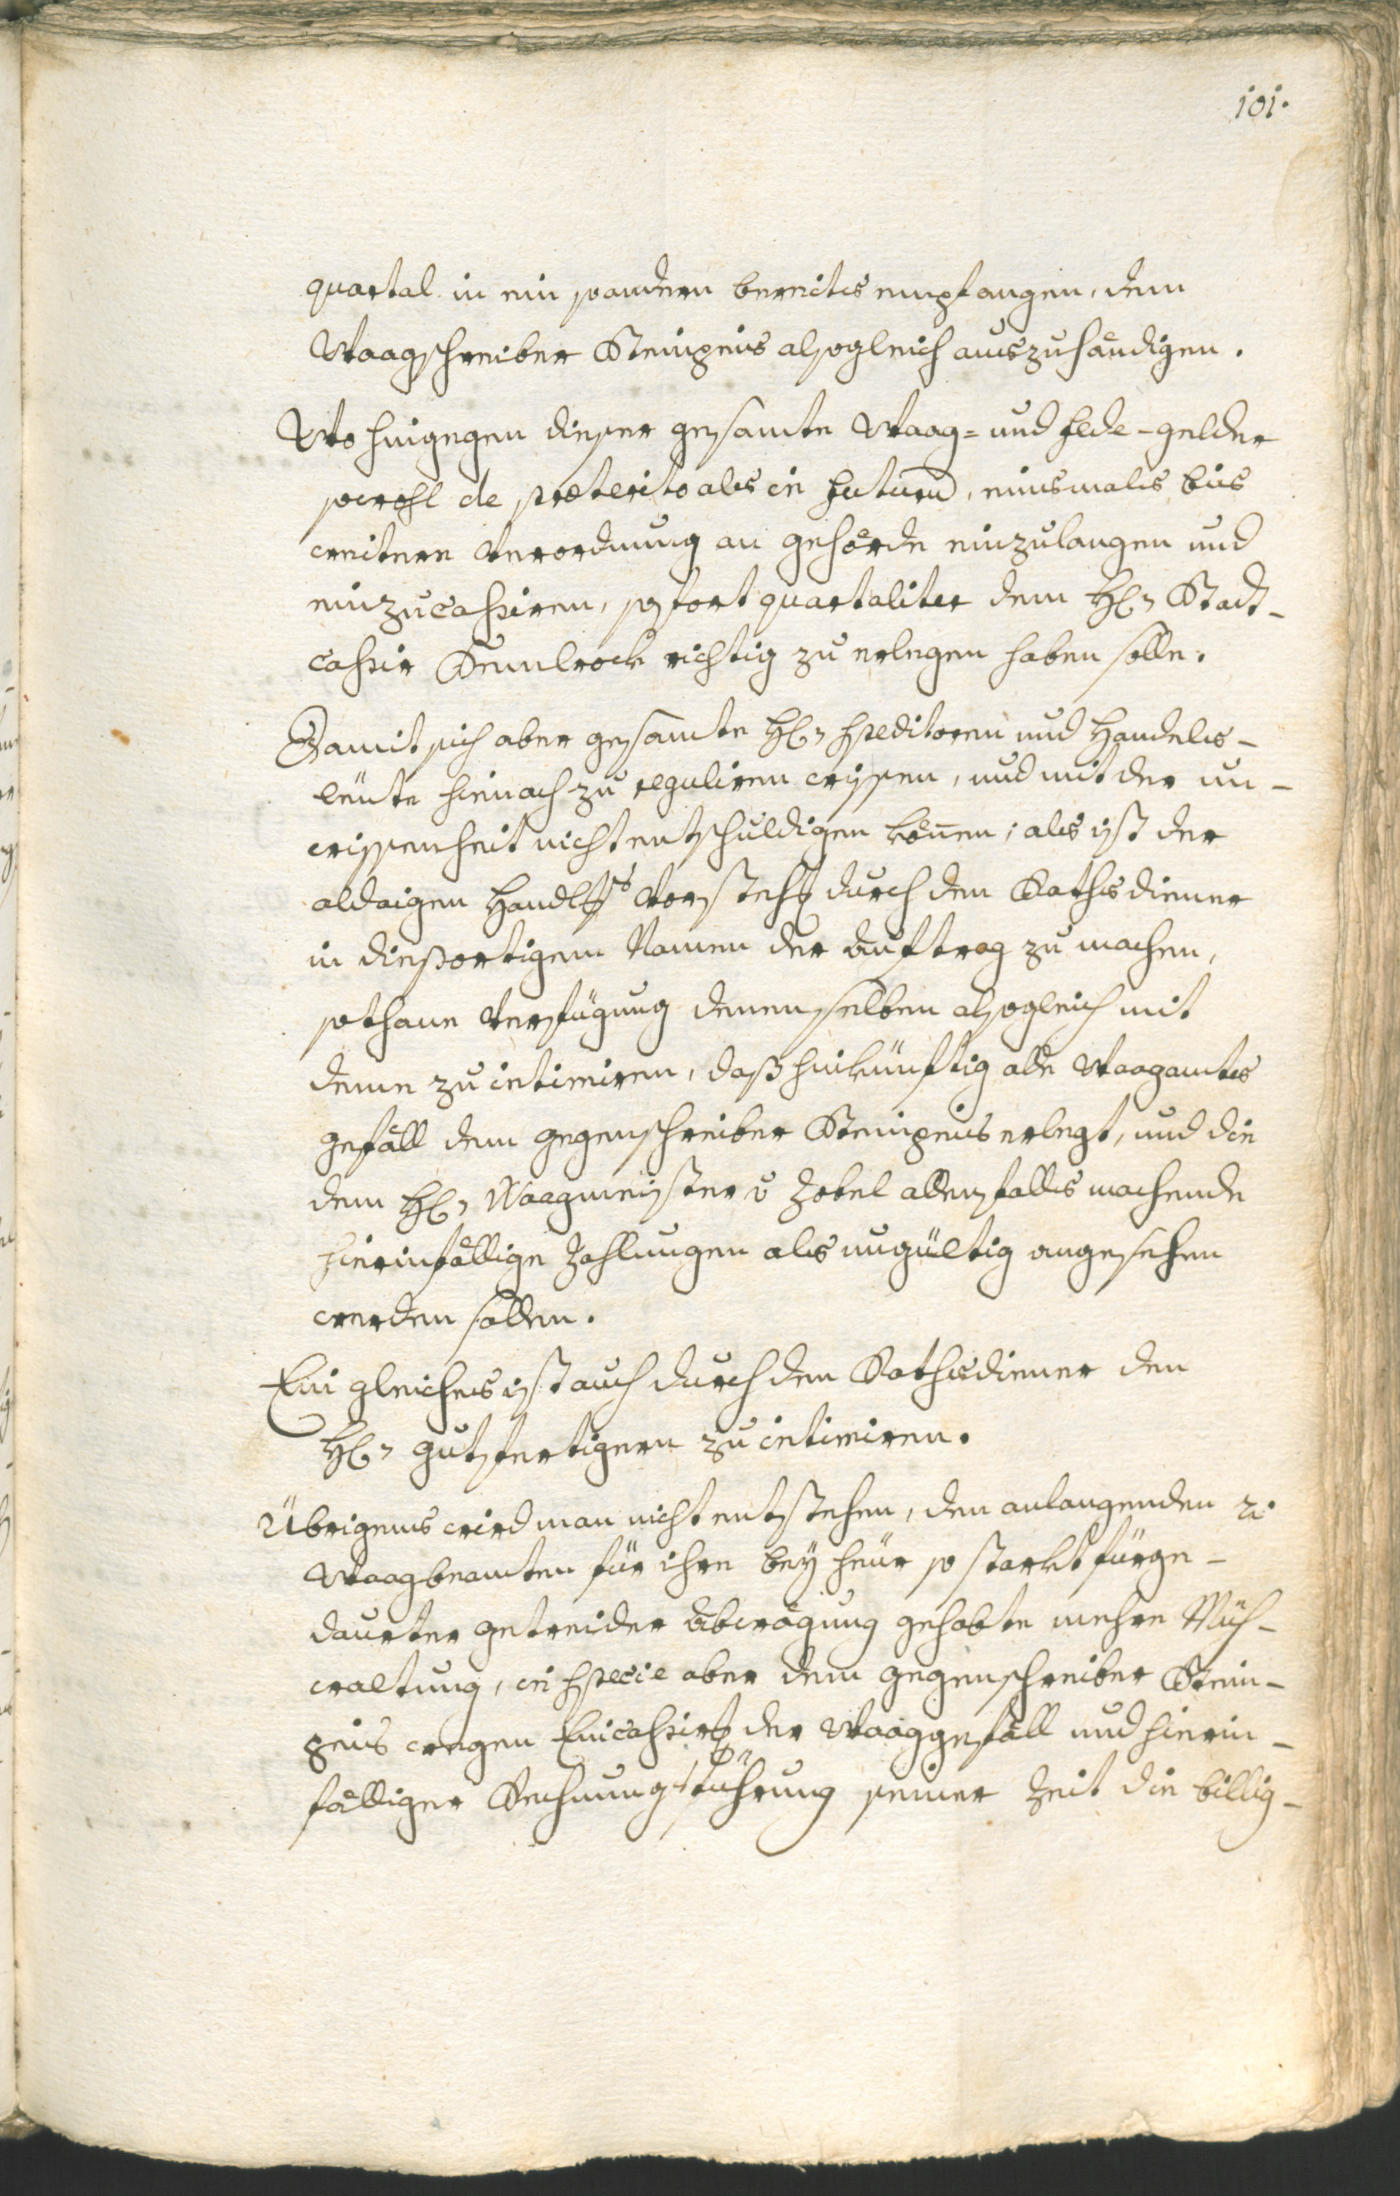 101.
quartal in ein so andern bereits empfangen, dem
Waagschreiber Steinpeis alsogleich auszuhändigen.
Wo hingegen dieser gesamte Waag- und fede-gelder
sowohl de præterito als in futurũ, einsmals bis
weitere Verordnung an gehörde einzulangen und
einzucassiren, sofort quartaliter dem H: Stadt-
cassir richtig zu erlegen haben solle.
Damit sich aber gesamte H: Speditoren und Handels-
leüte hienach zu reguliren wissen, und mit der un-
wissenheit nicht entschuldigen können; als ist der
aldaigen Handls Vorsteh durch den Rathsdiener
in dießortigem Namen der auftrag zu machen,
sothane Verfügung denenselben alsogleich mit
deme zu intimiren, daß hinkünftig alle Waagamts
gefäll dem gegenschreiber Steinpeis erlegt, und die
dem H: Waagmeister v Zobel allenfalls machende
hierinfällige Zahlungen als ungültig angesehen
werden sollen.
Ein gleiches ist auch durch den Rathsdiener den
H: gutsfertigern zu intimiren.
Übrigens wird man nicht entstehen, den anlangenden 2.
Waagbeamten für ihre bey heür so starkt fürge-
daurter getreider abwägung gehabte mehre Müh-
waltung, in specie aber dem gegenschreiber Stein-
peis wegen Einicassir der Waaggefäll und hierin-
fälliger Rechnungsführung seiner Zeit die billig-